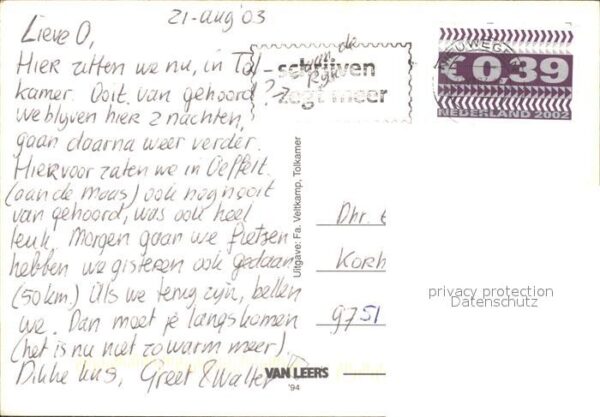 21-aug '03
Lieve O,
Hier zitten we nu, in Tol-
kamer. Ooit van gehoord??
we blijven hier 2 nachten,
gaan daarna weer verder.
Hiervoor zaten we in Oeffelt.
(aan de Maas) ook nog nooit
van gehoord, was ook heel
leuk. Morgen gaan we fietsen
hebben we gisteren ook gedaan
(50km.) Als we terug zijn, bellen
we. Dan moet je langskomen
(het is nu niet zo warm meer).
Dikke kus, Greet & Walter
van die
schrijven
zegt meer
NIEUWEGEIN
€ 0,39
NEDERLAND 2002
Uitgave: Fa. Veltkamp, Tolkamer
Dhr.
Korh
9751
VAN LEERS
'94
privacy protection
Datenschutz